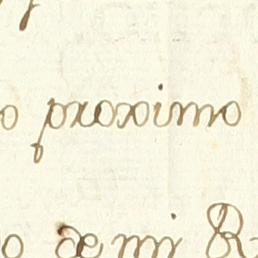 o proximo
o de mi R